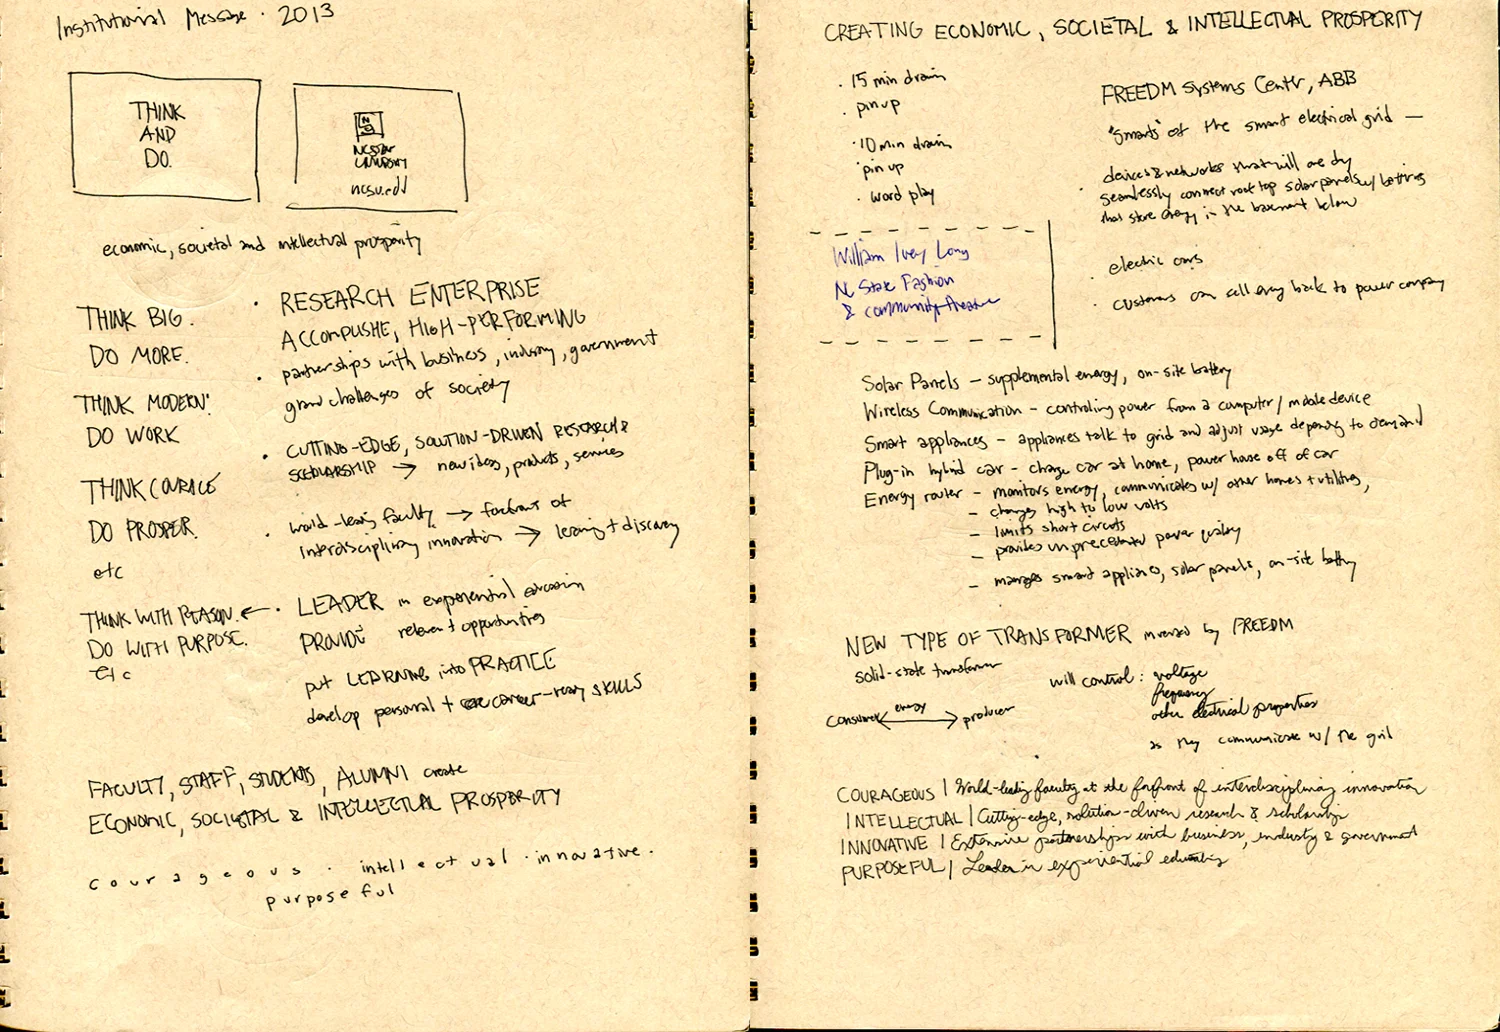 Institutional Message · 2013
THINK
AND
DO.
NC STATE
UNIVERSITY
ncsu.edu
economic, societal and intellectual prosperity
THINK BIG.
DO MORE.
THINK MODERN.
DO WORK
THINK COURAGE
DO PROSPER.
etc
THINK WITH REASON. ←
DO WITH PURPOSE.
etc
· RESEARCH ENTERPRISE
ACCOMPLISHE, HIGH-PERFORMING
· partnerships with business, industry, government
grand challenges of society
· CUTTING-EDGE, SOLUTION-DRIVEN RESEARCH &
SCHOLARSHIP → new ideas, products, services
· world-leading faculty → forefront of
interdisciplinary innovation → learning + discovery
· LEADER in experiential education
PROVIDE relevant opportunities
put LEARNING into PRACTICE
develop personal + career-ready SKILLS
FACULTY, STAFF, STUDENTS, ALUMNI create
ECONOMIC, SOCIETAL & INTELLECTUAL PROSPERITY
courageous · intellectual · innovative ·
purposeful
CREATING ECONOMIC, SOCIETAL & INTELLECTUAL PROSPERITY
· 15 min drain
· pin up
· 10 min drain
· pin up
· word play
William Ivey Long
NC State Fashion
& community theatre
FREEDM Systems Centr, ABB
"smarts" of the smart electrical grid —
· devices & networks that will one day
seamlessly connect rooftop solar panels w/ batteries
that store energy in the basement below
· electric cars
· customers can sell energy back to power company
Solar Panels – supplemental energy, on-site battery
Wireless Communication – controling power from a computer / mobile device
Smart appliances – appliances talk to grid and adjust usage depending to demand
Plug-in hybrid car – charge car at home, power house off of car
Energy router – monitors energy, communicates w/ other homes + utilities,
– changes high to low volts
– limits short circuits
– provides unprecedented power quality
– manages smart appliances, solar panels, on-site battery
NEW TYPE OF TRANSFORMER invented by FREEDM
solid-state transformer
consumer ← energy → producer
will control: voltage
frequency
other electrical properties
as they communicate w/ the grid
COURAGEOUS | World-leading faculty at the forefront of interdisciplinary innovation
INTELLECTUAL | Cutting-edge, solution-driven research & scholarship
INNOVATIVE | Extensive partnerships with business, industry & government
PURPOSEFUL | Leader in experiential education